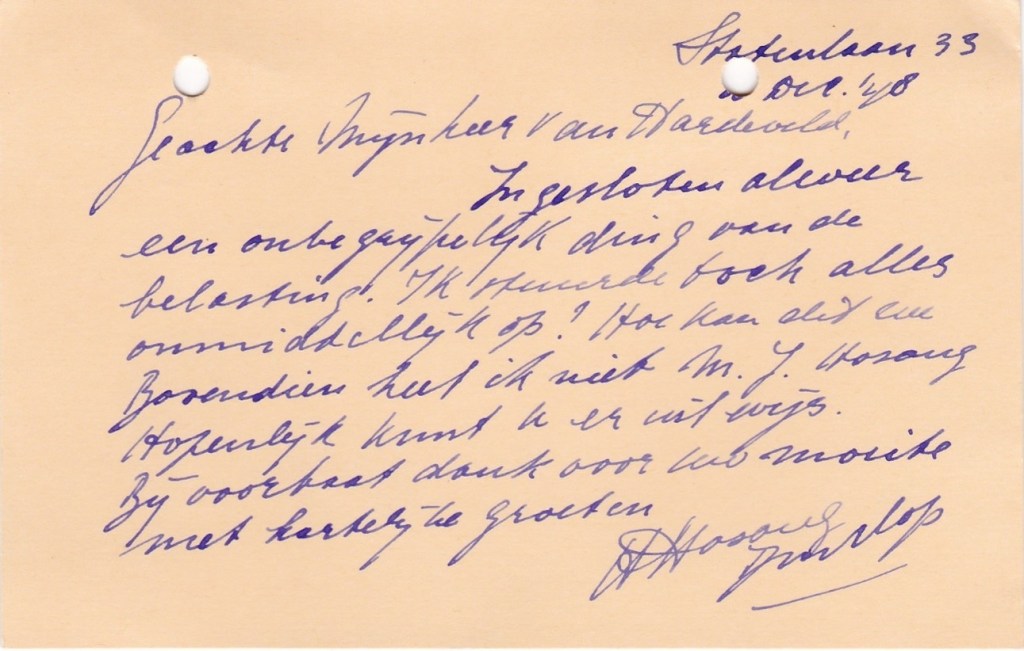 Statenlaan 33
Dec. '78
Geachte Mijnheer van Hardeveld,
Ingesloten alweer
een onbegrijpelijk ding van de
belasting. Ik stuurde toch alles
onmiddellijk op? Hoe kan dit nu
Bovendien heet ik niet M. J. Hosang
Hopenlijk kunt u er uit wijs.
Bij voorbaat dank voor uw moeite
met hartelijke groeten
Hosang